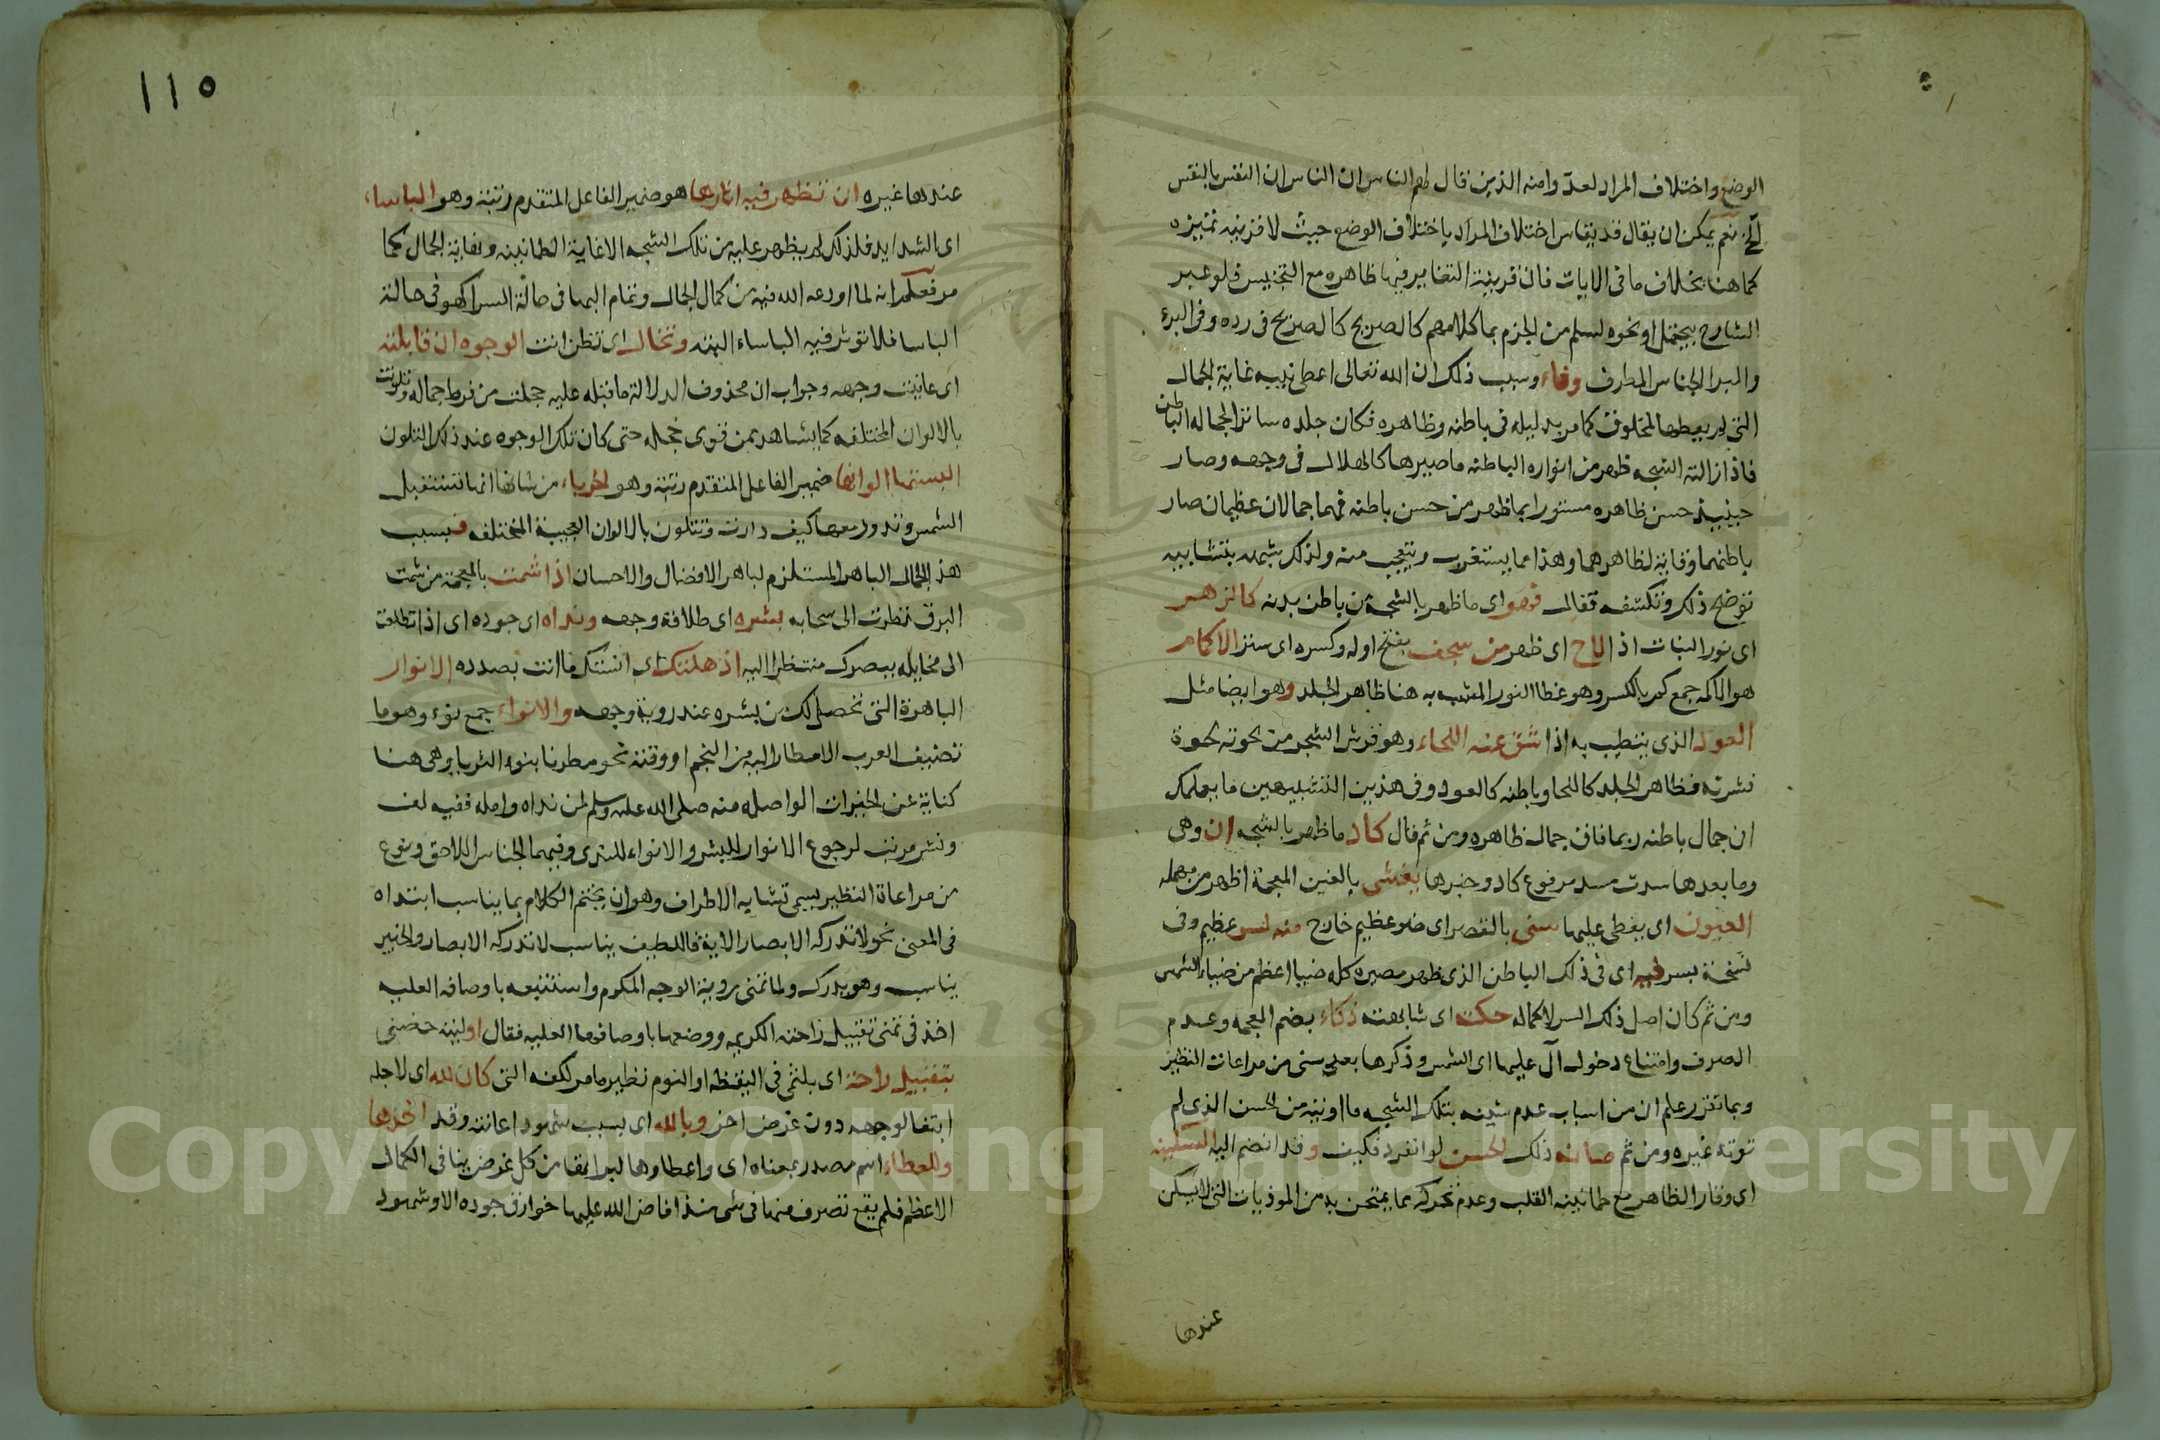 الوضع واختلاف المراد لعد وامنه الذين قال لهم الناس ان الناس ان النفس بالنفس
الخ نعم يمكن ان يقال قد يقاس اختلاف المراد باختلاف الوضع حيث لا قرينه تميزه
كما هنا بخلاف ما فى الايات فان قرينة التغاير فيها ظاهره مع التجنيس فلو عبر
الشارح بيحتمل او نحوه لسلم من الجزم بما كلامهم كالصريح كالصريح فى رده وفى البرء
والبرا الجناس المطرف وفاء وسبب ذلك ان الله تعالى اعطى نبيه غاية الجمال
التى لم يعطها لمخلوق كما مر بدليله فى باطنه وظاهره فكان جلده ساتر الجماله الباطن
فاذا زالته الشجه ظهر من انواره الباطنه ما صيرها كالهلال فى وجهه وصار
حينيذ حسن ظاهره مستورا بما ظهر من حسن باطنه فهما جمالان عظيمان صار
باطنهما وقاية لظاهرهما وهذا مما يستغرب ويتعجب منه ولذلك شبهه بتشابيه
توضح ذلك وتكشفه فقال فهو اى ما ظهر بالشجة من باطن بدنه كالزهر
اى نور النبات اذا لاح اى ظهر من سجف بفتح اوله وكسره اى ستر الاكمام
هو الاكمه جمع كم بالكسر وهو غطا النور المشبه به هنا ظاهر الجلد وهو ايضا مثل
العود الذى يتطيب به اذا شق عنه اللحاء وهو قشر الشجر من لحوته لحوة
قشرته فظاهر الجلد كاللحا وباطنه كالعود وفى هذين التشبيهين ما يعلمك
ان جمال باطنه ربما فاق جمال ظاهره ومن ثم قال كاد ما ظهر بالشجه ان وهى
وما بعدها سدت مسد مرفوع كاد وخبرها يغشى بالغين المعجمة اظهر من مهمله
العيون اى يغطى عليها سنى بالقصر اى ضوء عظيم خارج منه لسر عظيم وفى
نسخة بسر فيه اى فى ذلك الباطن الذى ظهر مصيره كله ضيا اعظم من ضياء الشمس
ومن ثم كان اصل ذلك السر لاكماله حكته اى شابهته ذكاء بضم المعجمه وعدم
الصرف وامتناع دخول آل عليها اى الشمس وذكرها بعد سنى من مراعات النظير
وبما تقرر علم ان من اسباب عدم شينه بتلك الشجه ما اوتيه من الحسن الذى لم
توته غيره ومن ثم صانه ذلك الحسن لو انفرد فكيف وقد انضم اليه السكينه
اى وقار الظاهر مع طمانينه القلب وعدم تحركه عما يمتحن به من الموذيات التى لا يسكن
عندها
١١٥
عندها غيره ان تظهر فيه اثارها هو ضمير الفاعل المتقدم رتبة وهو الباساء
اى الشدايد فلذلك لم يظهر عليه من تلك الشجه الاغاية الطمانينه ونهاية الجمال كما
مر فعلم انه لما اودعه الله فيه من كمال الجمال وتمام البها فى حالة السرا كهو فى حالة
الباسا فلا توثر فيه الباساء البته وتخال اى تظن انت الوجوه ان قابلته
اى عاينت وجهه وجواب ان محذوف لدلالة ما قبله عليه خجلت من فرط جماله وتلونت
بالالوان المختلفه كما يشاهد بمن قوى خجله حتى كان تلك الوجوه عند ذلك التلون
البستها الوانها ضمير الفاعل المتقدم رتبة وهو الحرباء من شانها انها تستقبل
الشمس وتدور معها كيف دارت وتتلون بالالوان العجيبة المختلفه فبسبب
هذا الجمال الباهر المستلزم لباهر الافضال والاحسان اذا شمت بالمعجمة من شمت
البرق نظرت الى سحابه بشره اى طلاقة وجهه ونداه اى جوده اى اذا تطلعت
الى مخايله ببصرك منتظرا اليه اذهلتك اى انستك ما انت بصدده الانوار
الباهرة التى تحصل لك من بشره عند روية وجهه والانواء جمع نوء وهو ما
تضيف العرب الامطار اليه من النجم او وقته نحو مطرنا بنوء الثريا وهى هنا
كناية عن الخيرات الواصله منه صلى الله عليه وسلم لمن نداه وامله ففيه لف
ونشر مرتب لرجوع الانوار للبشر والانواء للندى وفيهما الجناس اللاحق ونوع
من مراعاة النظير يسمى تشابه الاطراف وهو ان يختم الكلام بما يناسب ابتداه
فى المعنى نحو لا تدركه الابصار الاية فاللطيف يناسب لا تدركه الابصار والخبير
يناسب وهو يدرك ولما تمنى روية الوجه المكرم واستتبعه باوصافه العليه
اخذ فى تمنى تقبيل راحته الكريمه ووصفها باوصافها العليه فقال او ليته خصنى
بتقبيل راحة اى بلثمى فى اليقظه او النوم نظير ما مر لكفه التى كان لله اى لاجله
ابتغا لوجهه دون غرض اخر وبالله اى بسبب شهود اعانته وقد اخذها
والعطاء اسم مصدر بمعناه اى واعطاوها لبرايتها من كل غرض ينافى الكمال
الاعظم فلم يقع تصرف منها فى شى منذ افاض الله عليها خوارق جوده الا وشهود